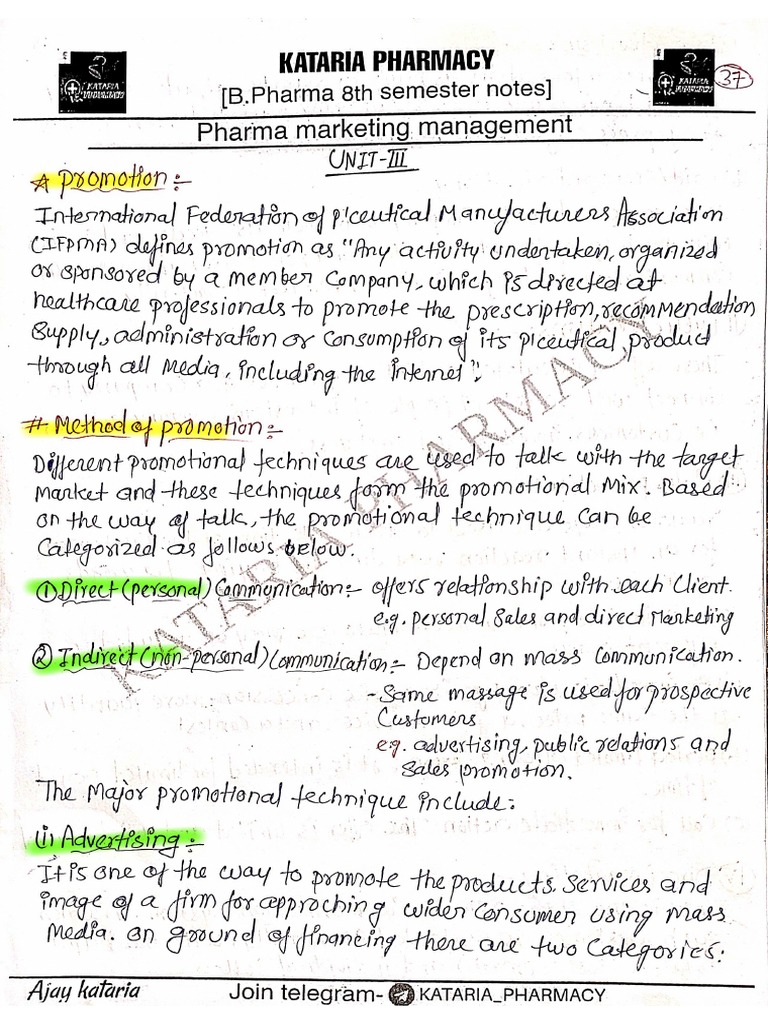 KATARIA PHARMACY
KATARIA PHARMACY
[B.Pharma 8th semester notes]
KATARIA
37
Pharma marketing management
UNIT-III
☆ promotion:-
International Federation of p'ceutical Manufacturers Association
(IFPMA) defines promotion as "Any activity undertaken, organized
or sponsored by a member Company, which is directed at
healthcare professionals to promote the prescription, recommendation
Supply, administration or Consumption of its p'ceutical product
through all Media, including the internet".
# Method of promotion:-
Different promotional techniques are used to talk with the target
Market and these techniques form the promotional Mix. Based
on the way of talk, the promotional technique can be
Categorized as follows below.
① Direct (personal) Communication:- offers relationship with each Client.
e.g. personal Sales and direct Marketing
② Indirect (non-personal) Communication:- Depend on mass Communication.
- Same massage is used for prospective
Customers
e.g. advertising, public relations and
Sales promotion.
The Major promotional technique include:
(i) Advertising:-
It is one of the way to promote the products, services and
image of a firm for approching wider Consumer using Mass
Media. on ground of financing there are two Categories:
KATARIA PHARMACY
Ajay kataria
Join telegram- KATARIA_PHARMACY